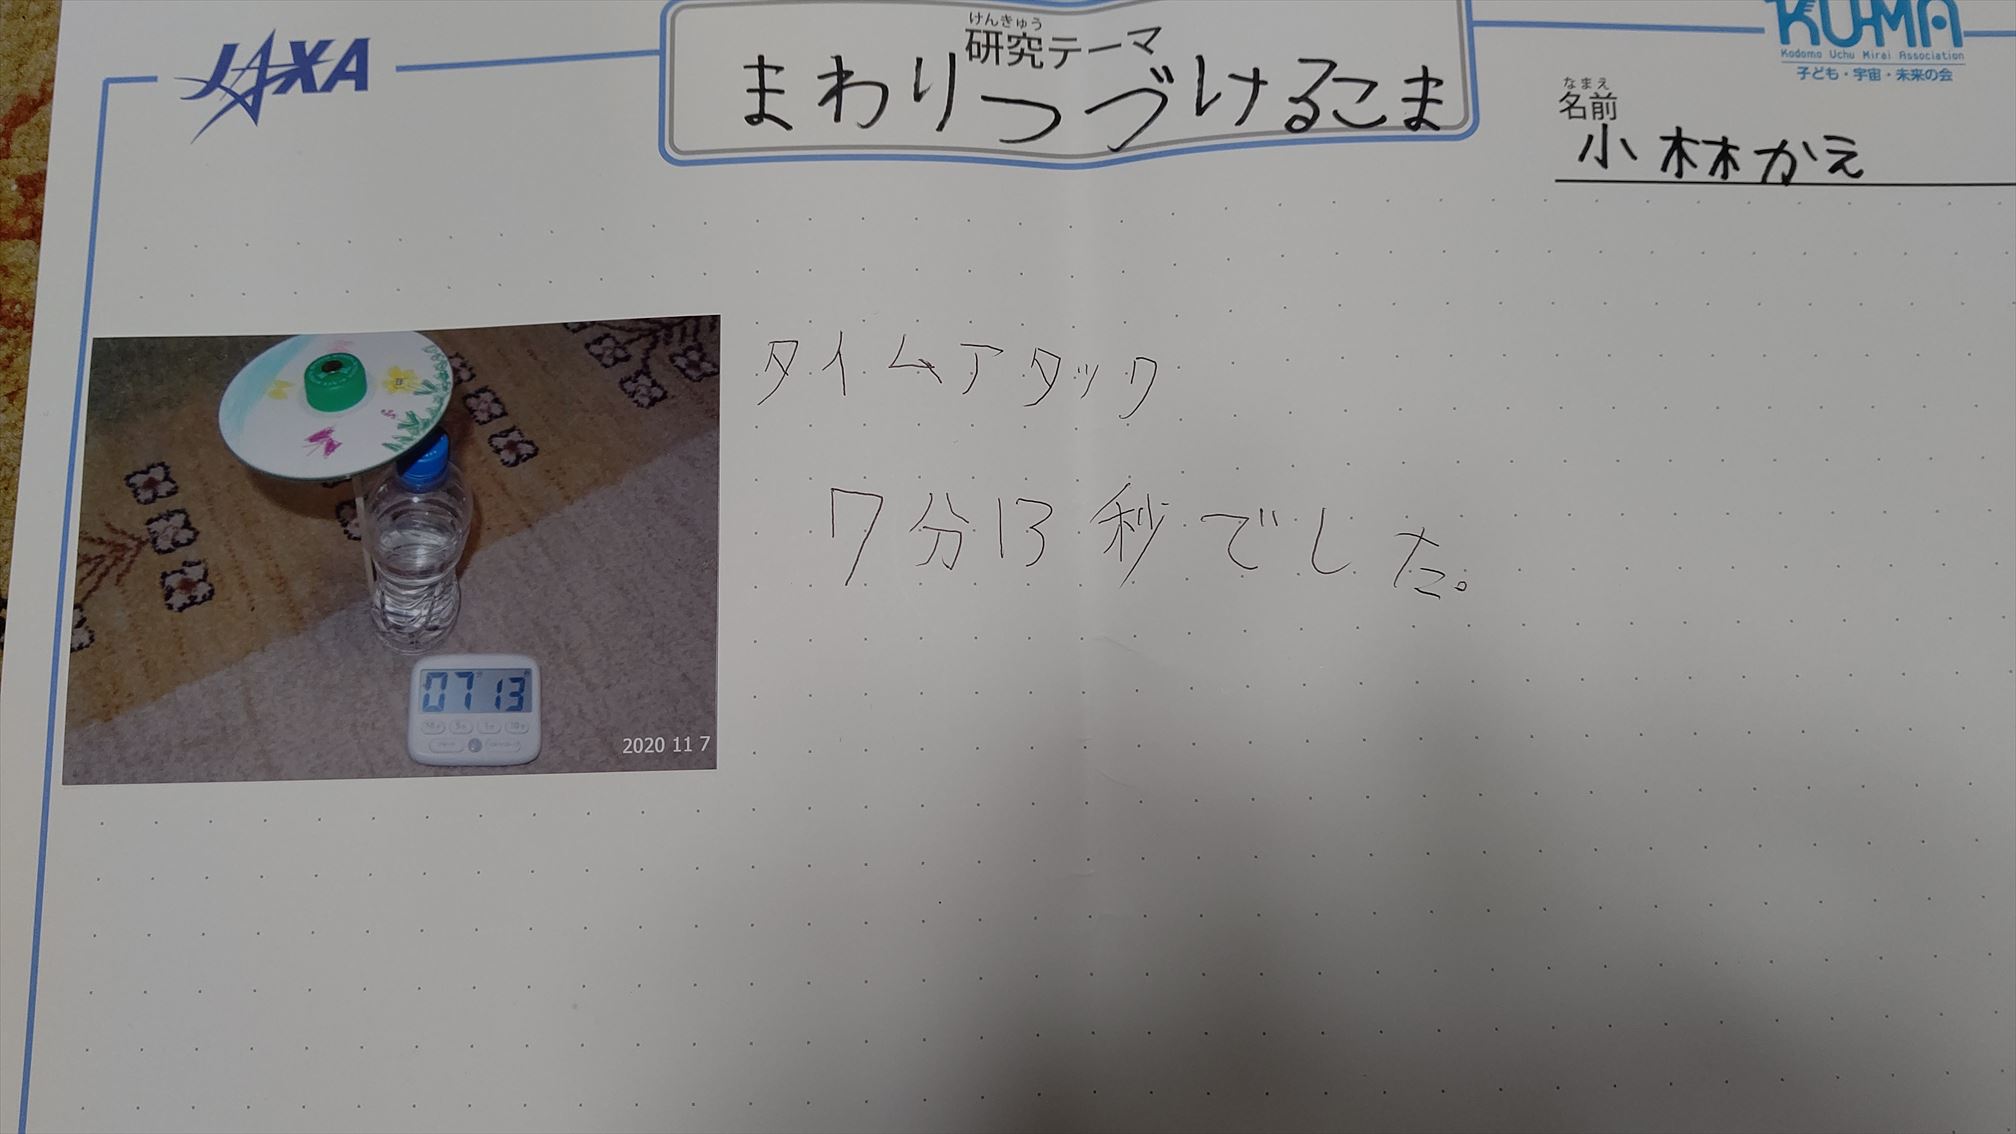 JAXA
けんきゅう
研究テーマ
まわりつづけるこま
KU-MA
Kodomo Uchu Mirai Association
子ども・宇宙・未来の会
なまえ
名前
小林かえ
タイムアタック
7分13秒でした。
07 13
2020 11 7